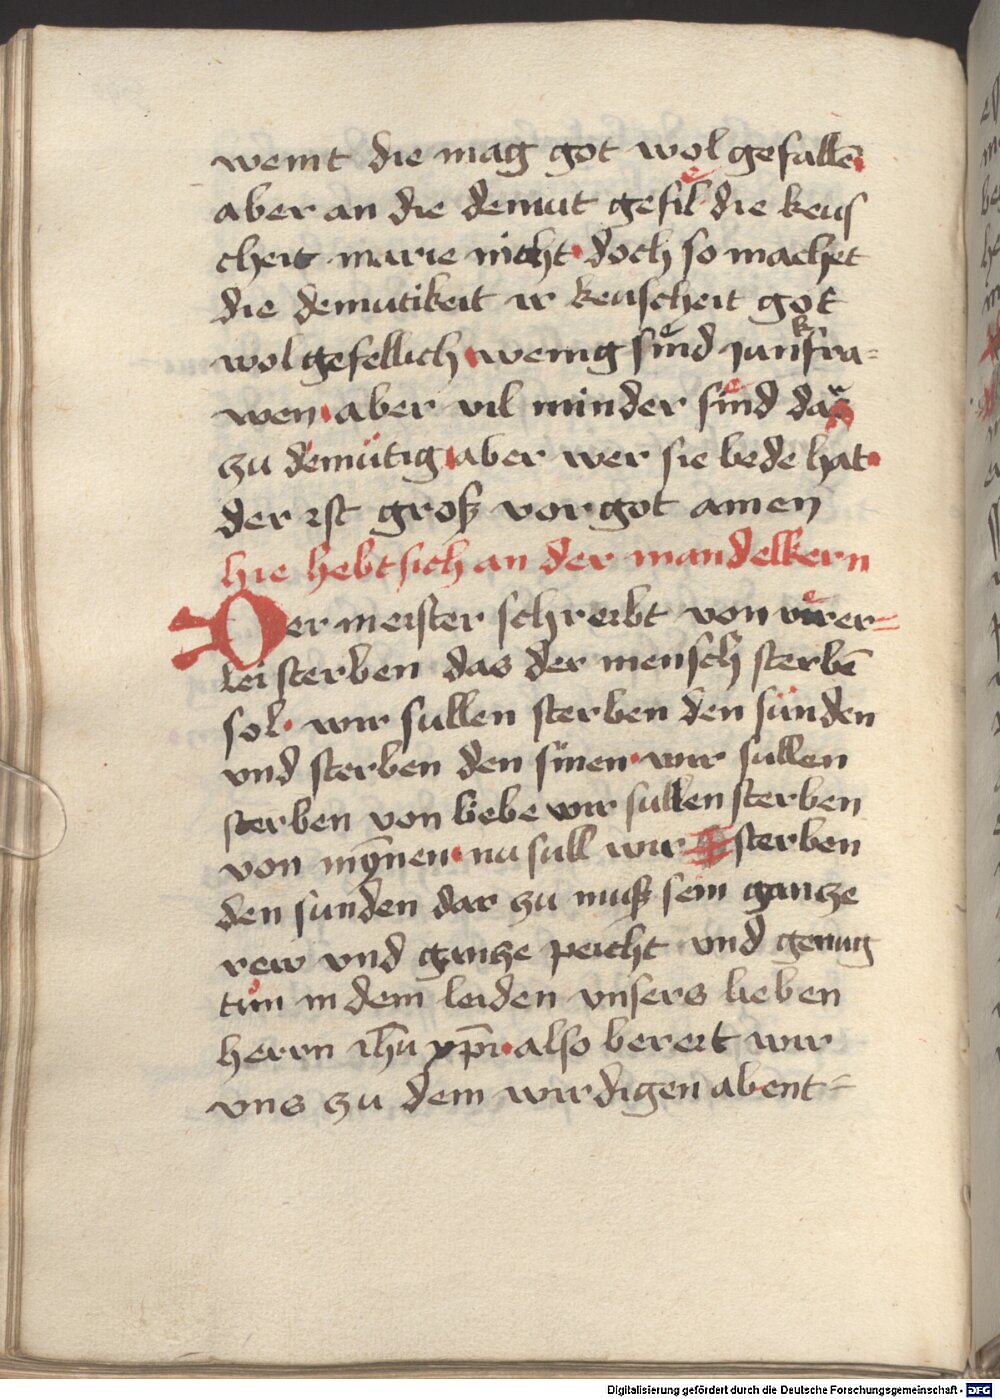 weint die mag got wol gefallē
aber an die demut gefil die keus
cheit marie nicht · doch so machet
die demutikeit ir keuscheit got
wol gefellich · wenig sind iunkfra=
wen · aber vil minder sind das
zu demütig · aber wer sie bede hat ·
der ist groß vor got amen
hie hebt sich an der mandelkern
Der meister schreibt von virer=
lei sterben das der mensch sterbē
sol · wir sullen sterben den sünden
vnd sterben den sinen · wir sullen
sterben von liebe wir sullen sterben
von mynnen · nu sull wir sterben
den sunden dar zu muß sein gancze
rew vnd gancze peicht vnd genug
tun in dem leiden vnsers lieben
herrn ihū xp̄i · also bereit wir
vns zu dem wirdigen abent=
Digitalisierung gefördert durch die Deutsche Forschungsgemeinschaft - DFG